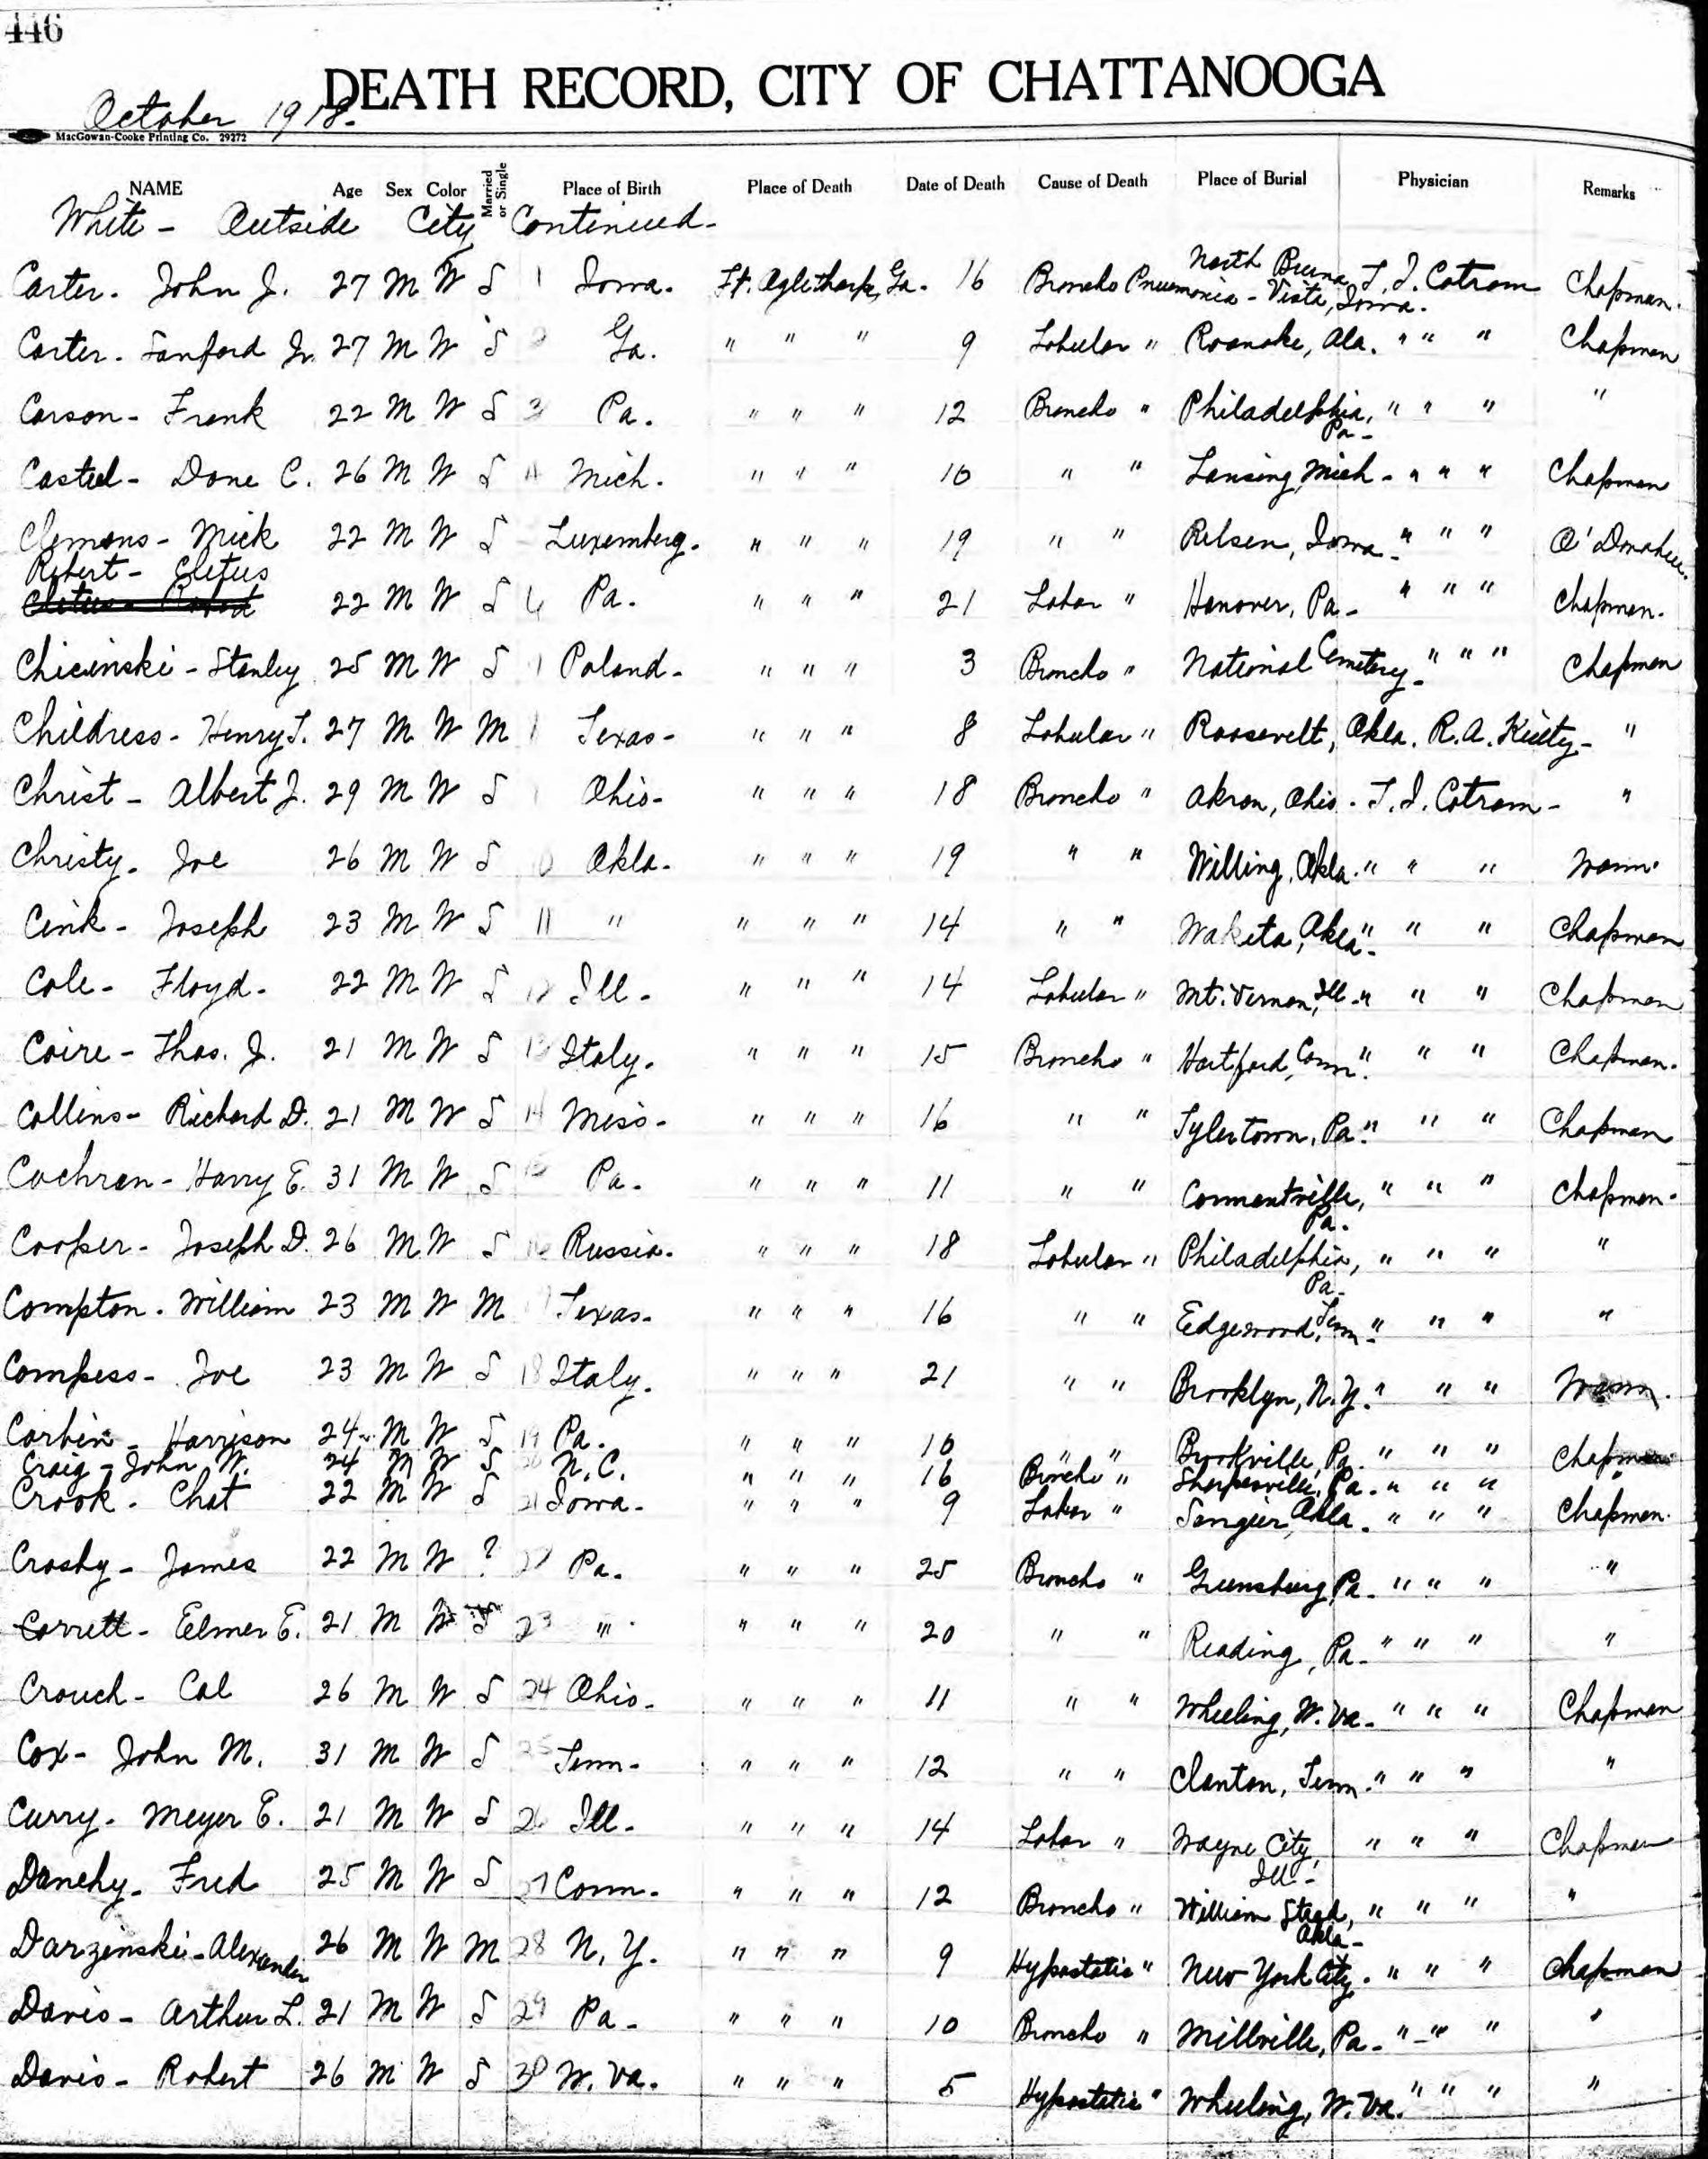 446
DEATH RECORD, CITY OF CHATTANOOGA
October 1918.
MacGowan-Cooke Printing Co. 29272
NAME Age Sex Color Married or Single Place of Birth Place of Death Date of Death Cause of Death Place of Burial Physician Remarks
White - Outside City Continued-
Carter. John J. 27 M W S 1 Iowa. Ft. Oglethorpe, Ga. 16 Broncho Pneumonia - North Buena Vista, Iowa. T. I. Cotrom Chapman.
Carter. Sanford Jr. 27 M W S Ga. " " " 9 Lobular " Roanoke, Ala. " " " Chapman
Carson - Frank 22 M W S 3 Pa. " " " 12 Broncho " Philadelphia, Pa - " " " "
Casteel - Dane C. 26 M W S 4 Mich. " " " 10 " " Lansing, Mich - " " " Chapman
Clemans - Mick 22 M W S Luxemberg. " " " 19 " " Iowa - " " " O'Donahue.
Robert - Cletus
Cletus - Robert 22 M W S 6 Pa. " " " 21 Lobar " Hanover, Pa - " " " Chapman.
Chicinski - Stanley 25 M W S Poland - " " " 3 Broncho " National Cemetery - " " " Chapman
Childress - Henry T. 27 M W M Texas - " " " 8 Lobular " Roosevelt, Okla. R. A. Kielty - "
Christ - Albert J. 29 M W S Ohio - " " " 18 Broncho " Akron, Ohio - T. I. Cotrom - "
Christy. Joe 26 M W S Okla. " " " 19 " " Willing, Okla. " " " Wann
Cink - Joseph 23 M W S 11 " " " " 14 " " Wakita, Okla - " " " Chapman
Cole - Floyd - 22 M W S 12 Ill - " " " 14 Lobular " Mt. Vernon, Ill - " " " Chapman
Coire - Thos. J. 21 M W S 13 Italy. " " " 15 Broncho " Hartford, Conn. " " " Chapman.
Collins - Richard D. 21 M W S 14 Miss - " " " 16 " " Tylertown, Pa. " " " Chapman
Cochran - Harry E. 31 M W S 15 Pa - " " " 11 " " Pa. " " " Chapman.
Cooper - Joseph D. 26 M W S 16 Russia. " " " 18 Lobular " Philadelphia, Pa - " " " "
Compton. William 23 M W M 17 Texas - " " " 16 " " Edgewood, Tenn - " " " "
Compess - Joe 23 M W S 18 Italy. " " " 21 " " Brooklyn, N. Y. " " " Wann.
Corbin - Harrison 24 M W S 19 Pa. " " " 10 " " Brookville, Pa. " " " Chapman
Craig - John W. 24 M W S 20 N. C. " " " 16 Broncho " Sharpesville, Pa. " " " "
Crook. Chat 22 M W S 21 Iowa - " " " 9 Lobar " Okla. " " " Chapman.
Crosby - James 22 M W ? 22 Pa. " " " 25 Broncho " Greensburg, Pa - " " " "
Corrett - Elmer E. 21 M W S 23 " " " " 20 " " Reading, Pa - " " " "
Crouch - Cal 26 M W S 24 Ohio - " " " 11 " " Wheeling, W. Va - " " " Chapman
Cox - John M. 31 M W S 25 Tenn - " " " 12 " " Clanton, Tenn. " " " "
Curry - Meyer E. 21 M W S 26 Ill - " " " 14 Lobar " Wayne City, Ill - " " " Chapman
Danehy - Fred 25 M W S 27 Conn - " " " 12 Broncho " William Okla - " " " "
Darzinski - Alexander 26 M W M 28 N. Y. " " " 9 Hypostatic " New York City. " " " Chapman
Davis - Arthur L. 21 M W S 29 Pa - " " " 10 Broncho " Millville, Pa - " " " "
Davis - Robert 26 M W S 30 W. Va. " " " 5 Hypostatic " Wheeling, W. Va. " " " "